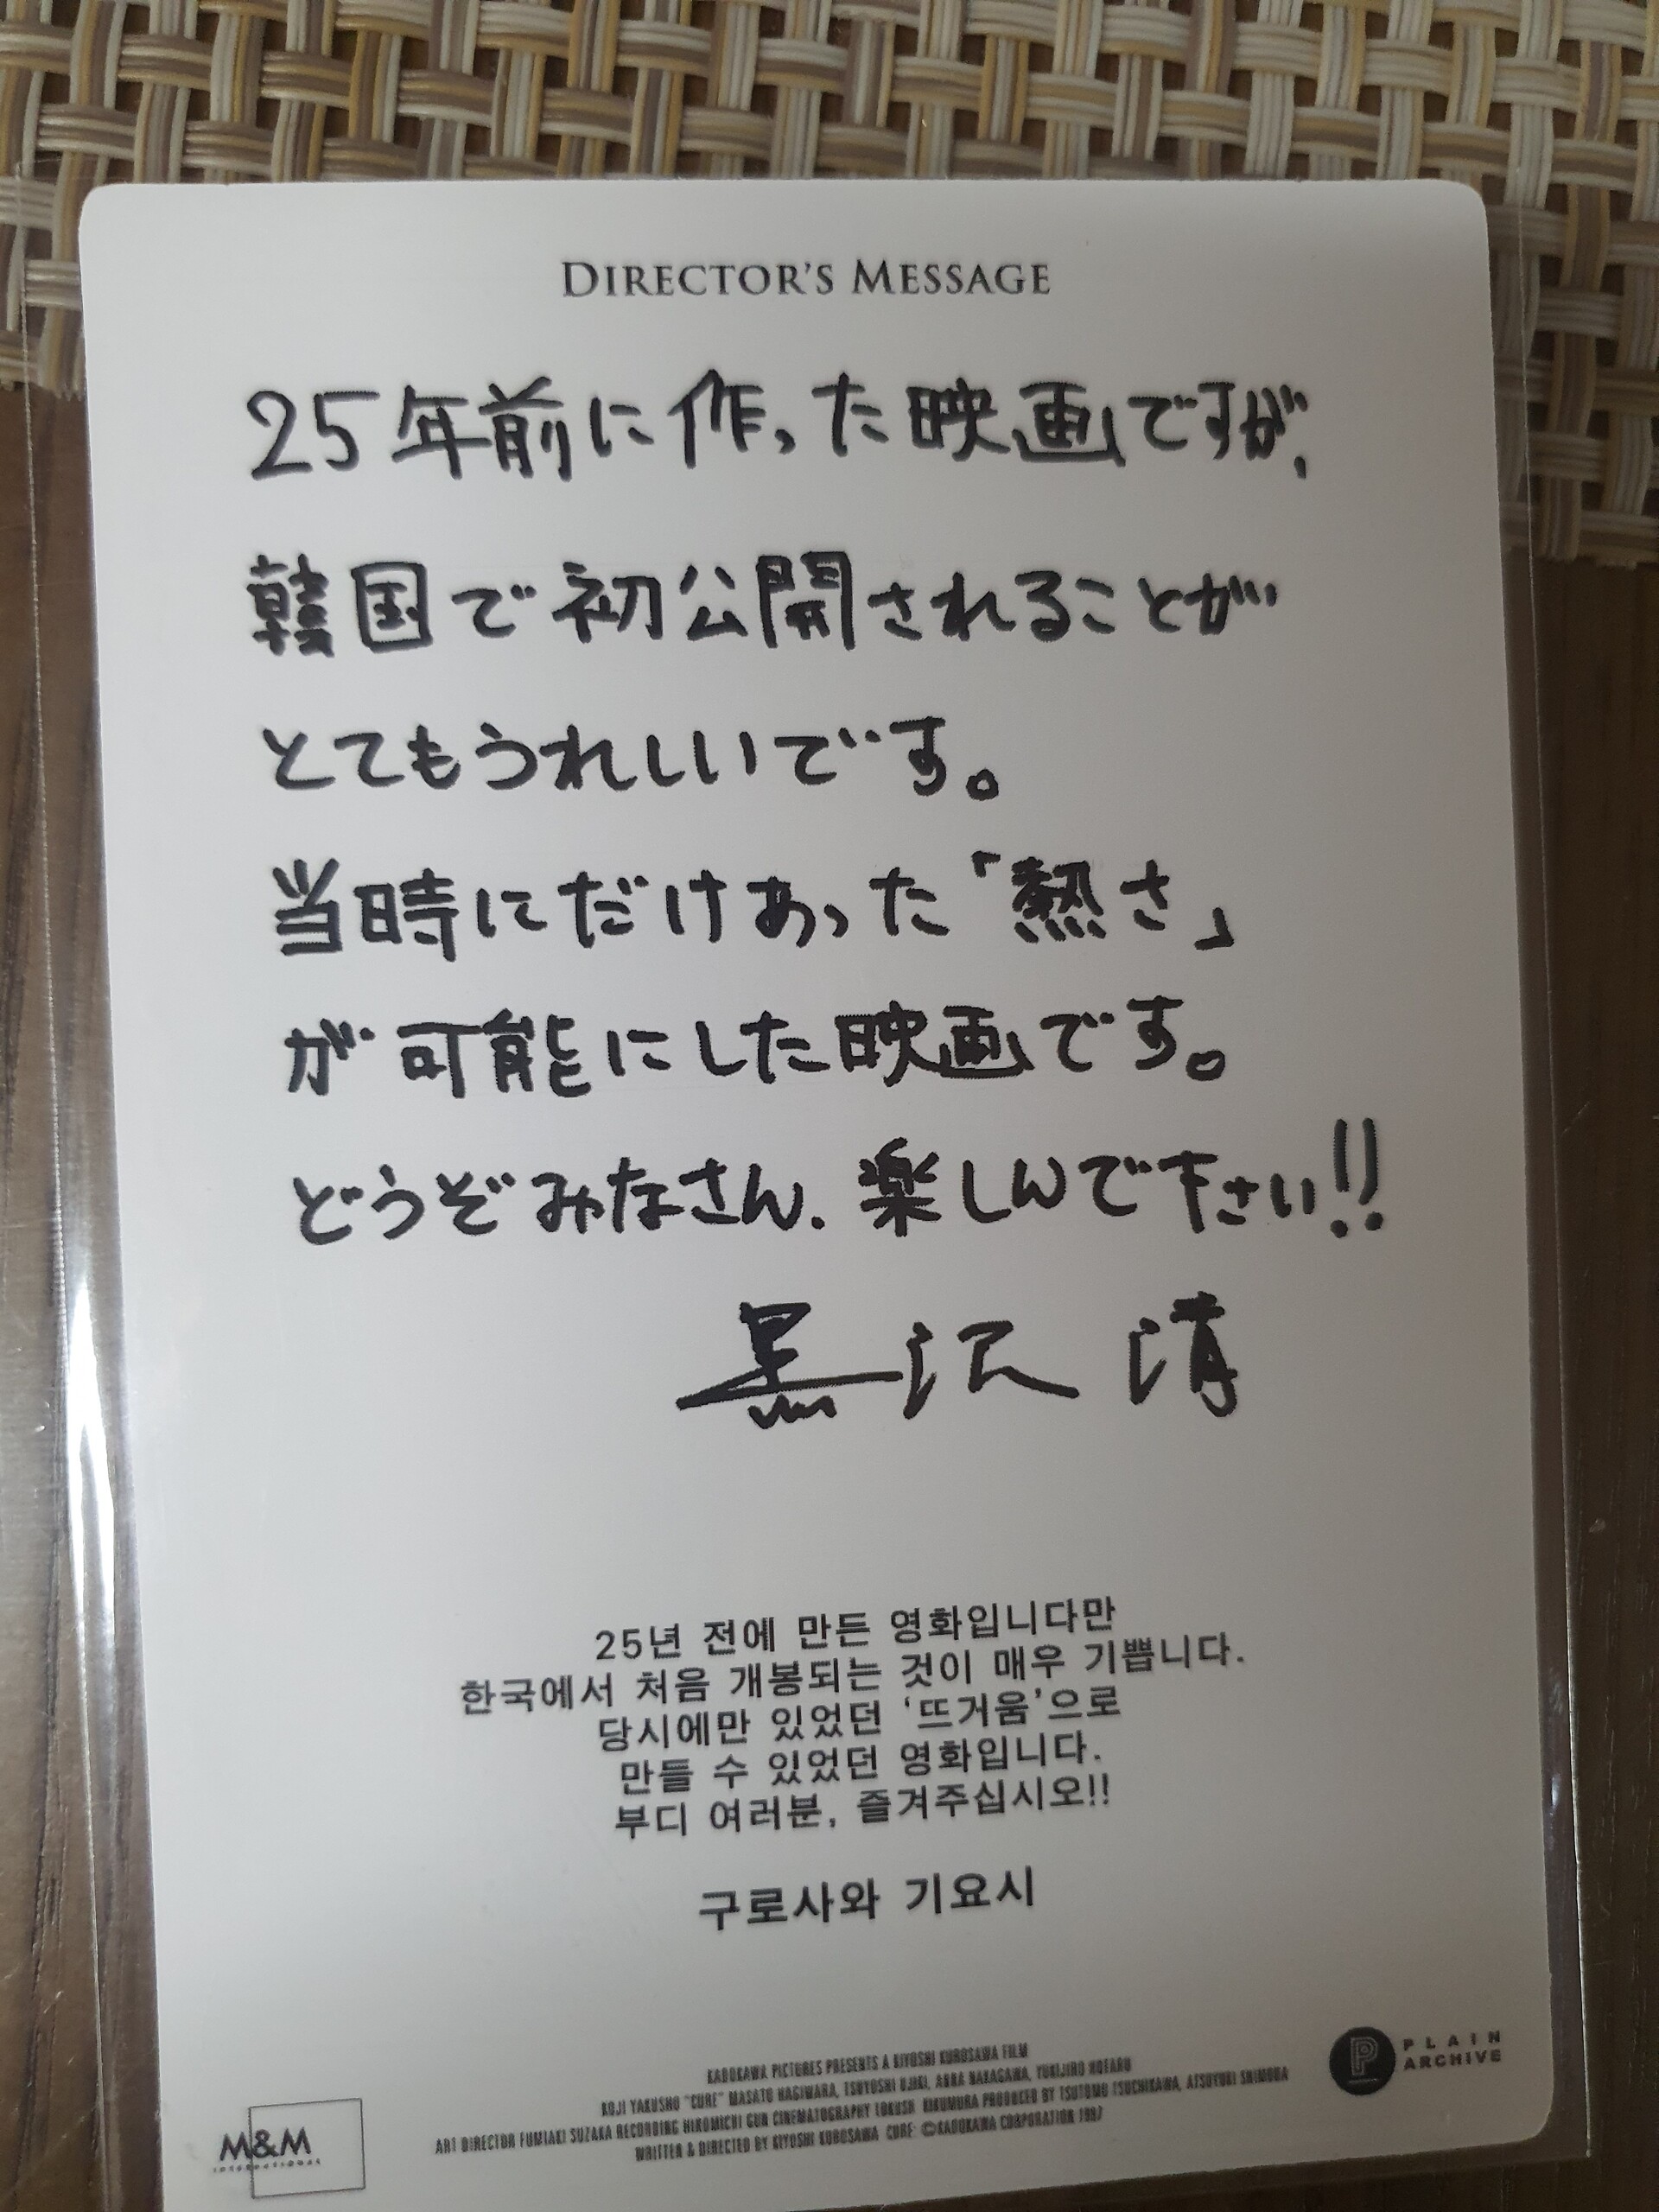 DIRECTOR'S MESSAGE
25年前に作った映画ですが、
韓国で初公開されることが
とてもうれしいです。
当時にだけあった「熱さ」
が可能にした映画です。
どうぞみなさん、楽しんで下さい!!
黒沢 清
25년 전에 만든 영화입니다만
한국에서 처음 개봉되는 것이 매우 기쁩니다.
당시에만 있었던 '뜨거움'으로
만들 수 있었던 영화입니다.
부디 여러분, 즐겨주십시오!!
구로사와 기요시
KADOKAWA PICTURES PRESENTS A KIYOSHI KUROSAWA FILM
KOJI YAKUSHO "CURE" MASATO HAGIWARA, TSUYOSHI UJIKI, ANNA NAKAGAWA, YUKIJIRO HOTARU
ART DIRECTOR FUMIAKI SUZAKA RECORDING HIROMICHI CINEMATOGRAPHY KIKUMURA PRODUCED BY TSUTOMU TSUCHIKAWA, ATSUYUKI SHIMODA
WRITTEN & DIRECTED BY KIYOSHI KUROSAWA CURE: ©KADOKAWA CORPORATION 1997
M&M
INTERNATIONAL
PLAIN
ARCHIVE